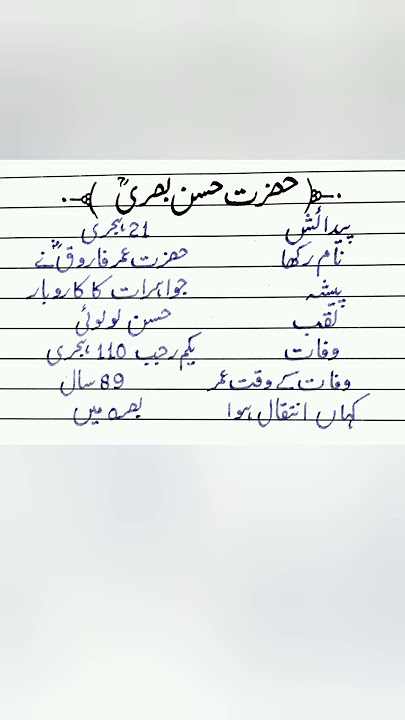 حضرت حسن بصریؒ
پیدائش 21 ہجری
نام رکھا حضرت عمر فاروقؓ نے
پیشہ جواہرات کا کاروبار
لقب حسن لولوئی
وفات یکم رجب 110 ہجری
وفات کے وقت عمر 89 سال
کہاں انتقال ہوا بصرہ میں